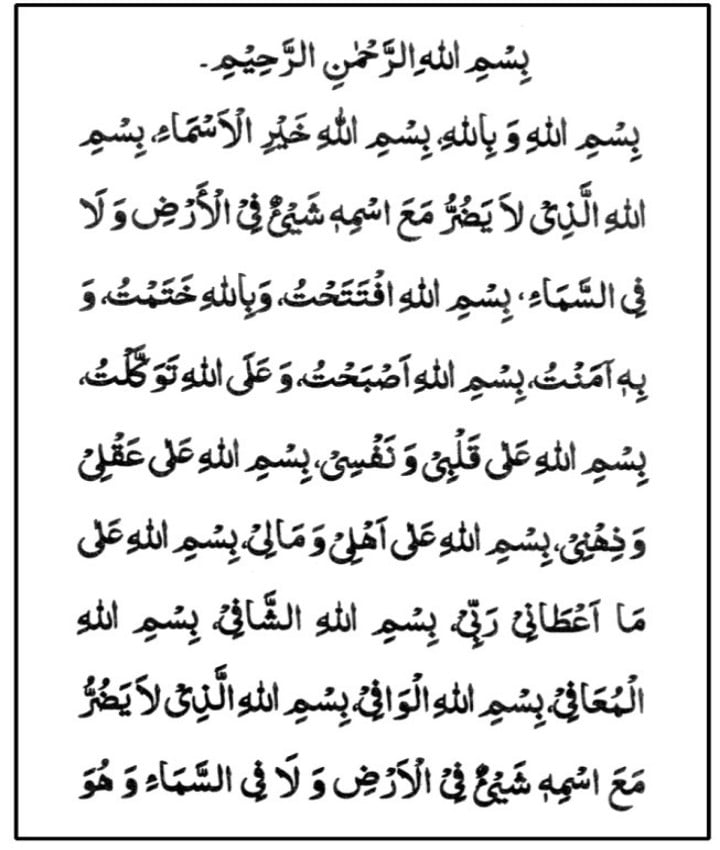 بِسْمِ اللهِ الرَّحْمٰنِ الرَّحِيْمِ۔
بِسْمِ اللهِ وَ بِاللهِ، بِسْمِ اللهِ خَيْرِ الْاَسْمَاءِ، بِسْمِ
اللهِ الَّذِىْ لاَ يَضُرُّ مَعَ اسْمِهٖ شَيْئٌ فِىْ الْأَرْضِ وَ لَا
فِى السَّمَاءِ، بِسْمِ اللهِ افْتَتَحْتُ، وَبِاللهِ خَتَمْتُ، وَ
بِهٖ آمَنْتُ، بِسْمِ اللهِ اَصْبَحْتُ، وَ عَلَى اللهِ تَوَكَّلْتُ،
بِسْمِ اللهِ عَلٰى قَلْبِىْ وَ نَفْسِىْ، بِسْمِ اللهِ عَلٰى عَقْلِىْ
وَ ذِهْنِىْ، بِسْمِ اللهِ عَلٰى اَهْلِىْ وَ مَالِىْ، بِسْمِ اللهِ عَلٰى
مَا اَعْطَانِىْ رَبِّىْ، بِسْمِ اللهِ الشَّافِىْ، بِسْمِ اللهِ
الْمُعَافِىْ، بِسْمِ اللهِ الْوَافِىْ، بِسْمِ اللهِ الَّذِىْ لاَ يَضُرُّ
مَعَ اسْمِهٖ شَيْئٌ فِىْ الْاَرْضِ وَ لَا فِى السَّمَاءِ وَ هُوَ